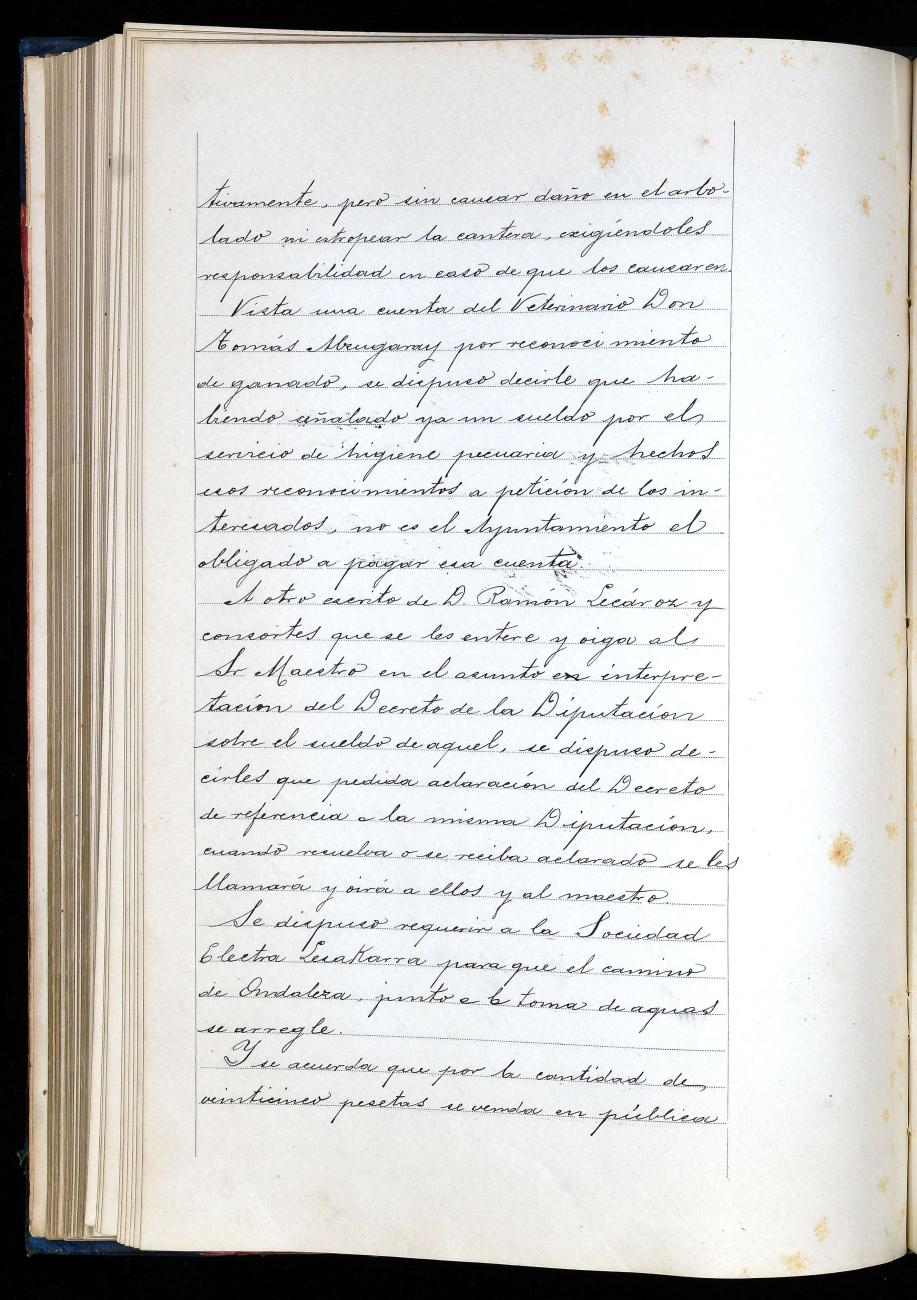 tivamente, pero sin causar daño en el arbo-
lado ni estropear la cantera, exigiéndoles
responsabilidad en caso de que los causaren.
Vista una cuenta del Veterinario Don
Tomás Abeugaray por reconocimiento
de ganado, se dispuso decirle que ha-
biendo señalado ya un sueldo por el
servicio de higiene pecuaria y hechos
esos reconocimientos a petición de los in-
teresados, no es el Ayuntamiento el
obligado a pagar esa cuenta.
A otro escrito de D. Ramón Lecároz y
consortes que se les entere y oiga al
Sr Maestro en el asunto en interpre-
tación del Decreto de la Diputación
sobre el sueldo de aquel, se dispuso de-
cirles que pedida aclaración del Decreto
de referencia a la misma Diputación,
cuando resuelva o se reciba aclarado se les
llamará y oirá a ellos y al maestro
Se dispuso requerir a la Sociedad
Electra Lesakarra para que el camino
de Ondaleza, junto a la toma de aguas
se arregle.
Y se acuerda que por la cantidad de
veinticinco pesetas se venda en pública